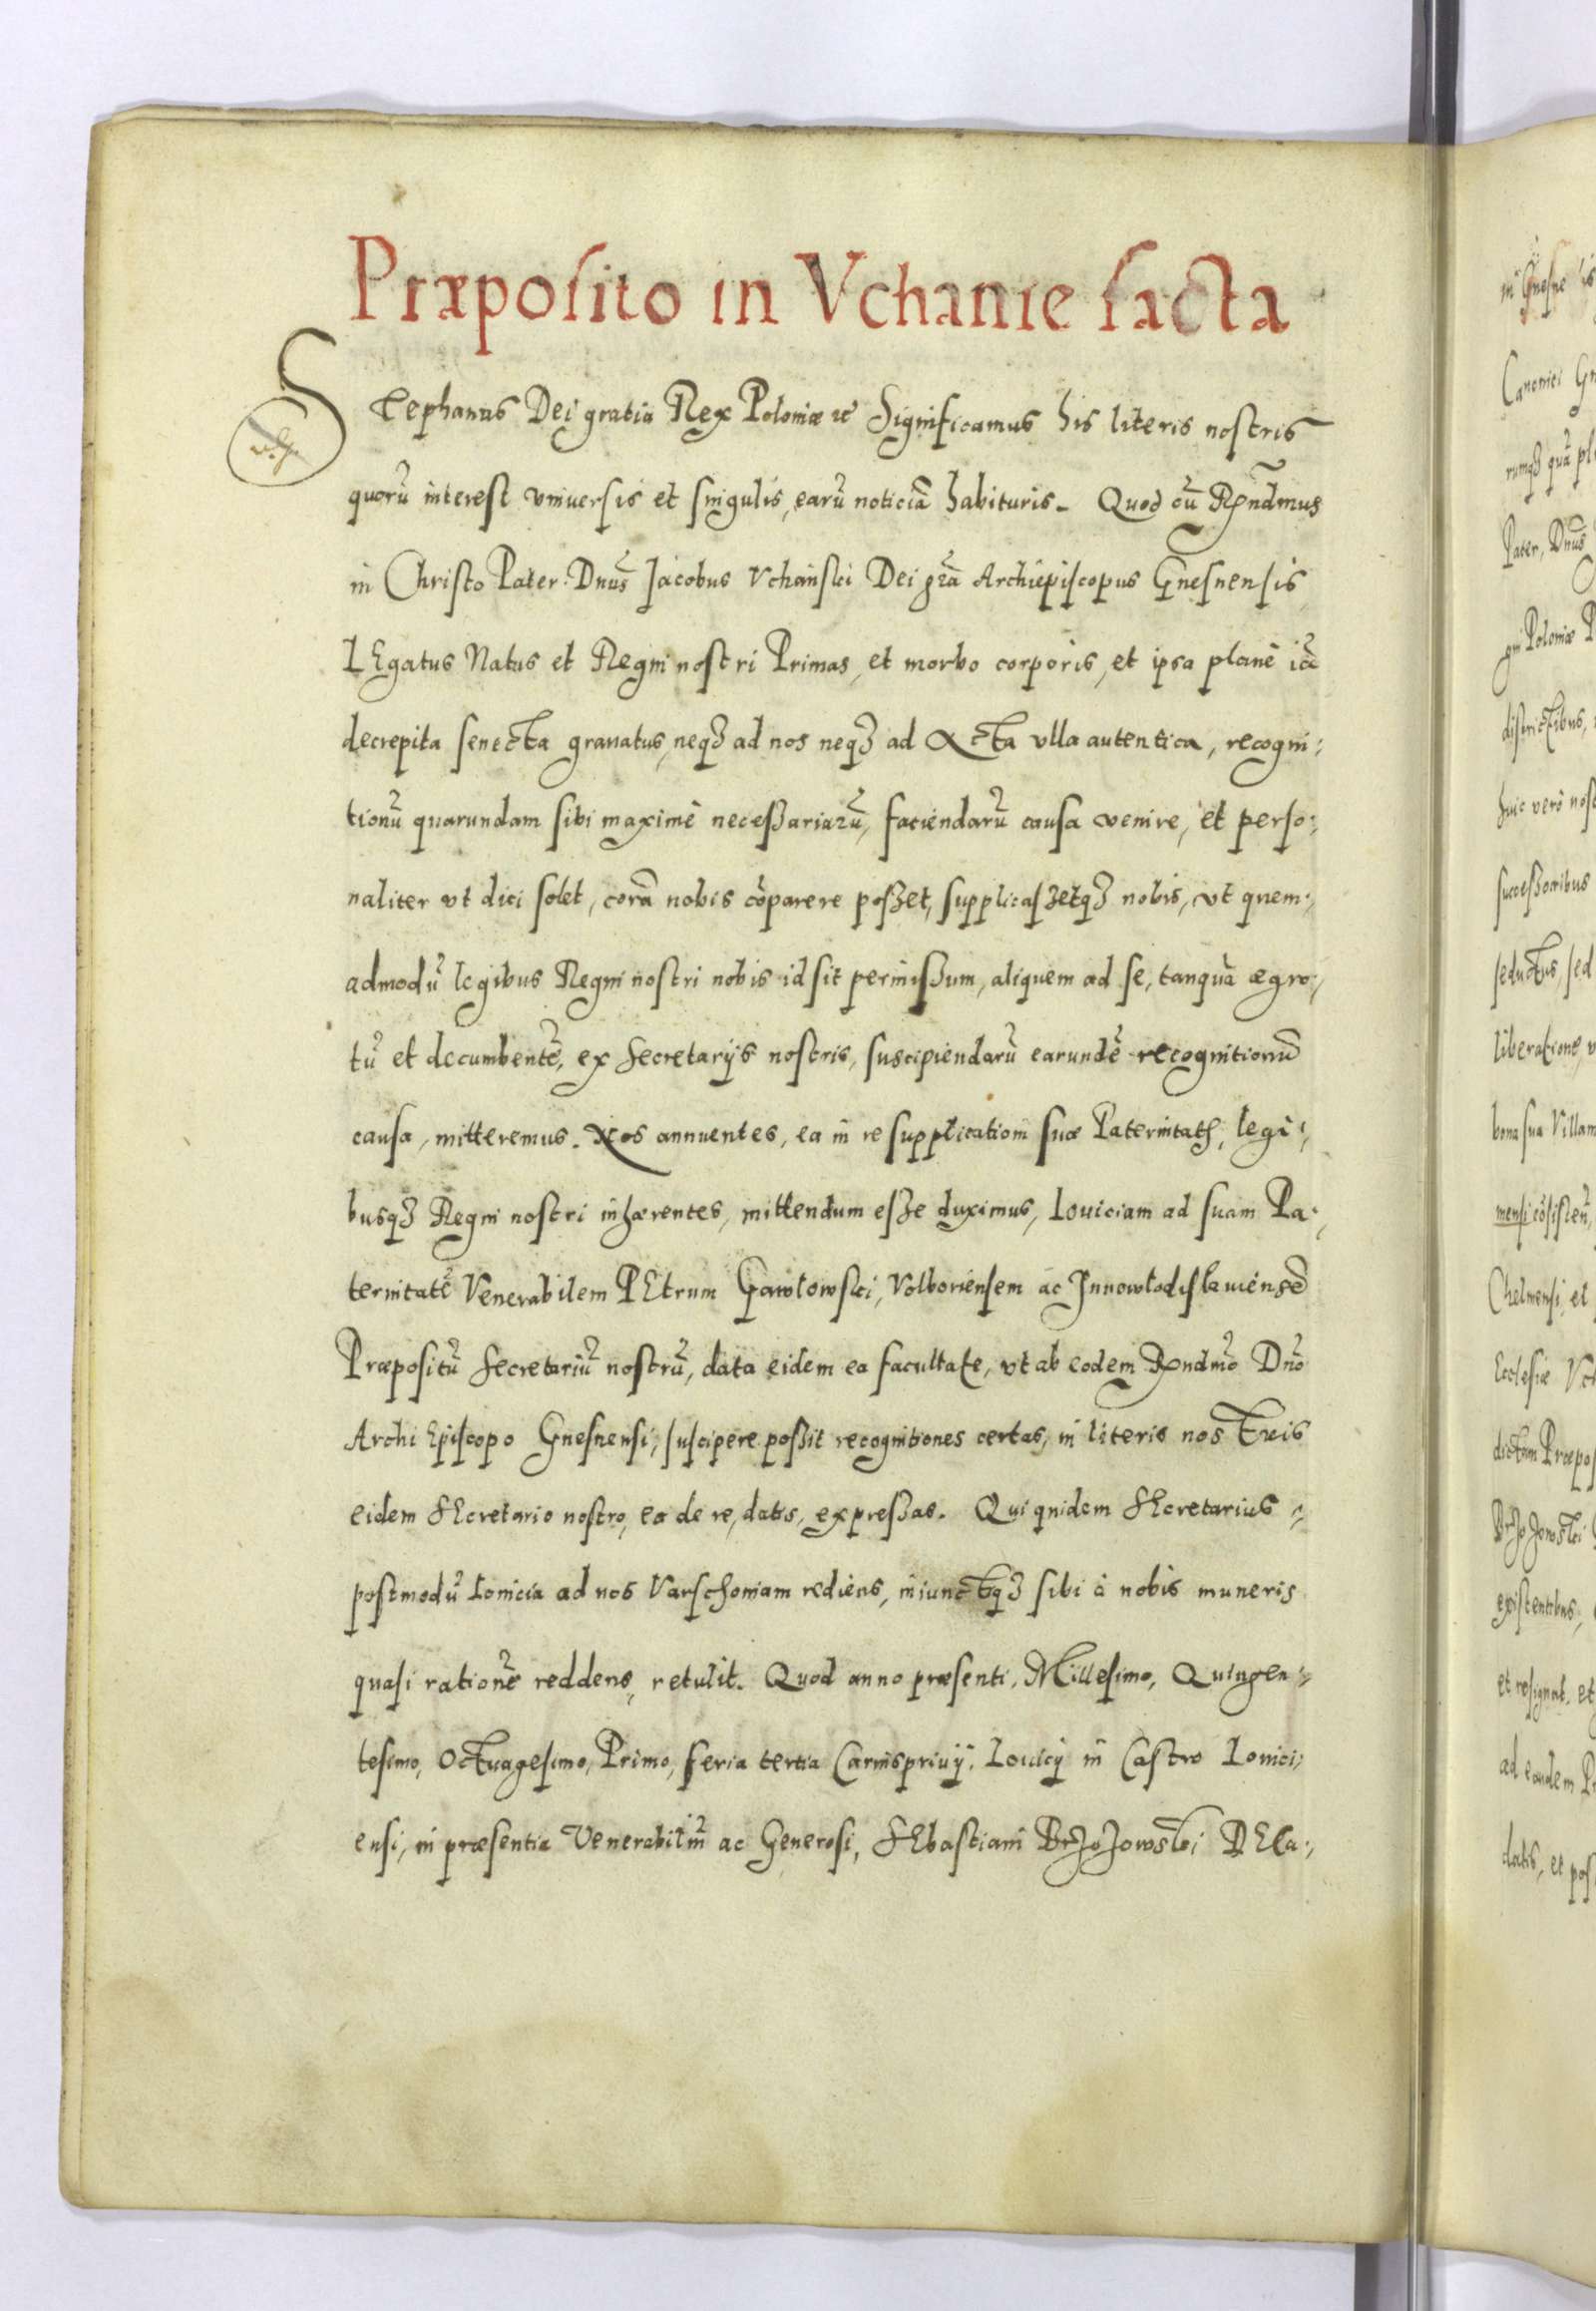 Præposito in Vchanie facta
Stephanus Dei gratia Rex Poloniæ ꝛc Significamus his literis nostris
quorũ interest vniuersis et singulis, earũ noticiã habituris. Quod cũ Rẽndmus
in Christo Pater Dnũs Jacobus Vchanski Dei grã Archiepiscopus Gnesnensis
LEgatus Natus et Regni nostri Primas, et morbo corporis, et ipsa planè iã
decrepita senecta grauatus, neqꝫ ad nos neqꝫ ad Acta vlla autentica, recogni-
tionũ quarundam sibi maximè neceßariarũ, faciendarũ causa venire, et perso-
naliter vt dici solet, corã nobis cõparere poßet, supplicaßetqꝫ nobis, vt quem-
admodũ legibus Regni nostri nobis id sit permißum, aliquem ad se, tanquã ægro-
tũ et decumbentẽ, ex Secretarijs nostris, suscipiendarũ earundẽ recognitionũ
causa, mitteremus. Nos annuentes, ea in re supplicationi suæ Paternitatis, legi-
busqꝫ Regni nostri inhærentes, mittendum eße duximus, Louiciam ad suam Pa-
ternitatẽ Venerabilem PEtrum Gawlowski, Volboriensem ac Junowlodislauiensẽ
Præpositũ Secretariũ nostrũ, data eidem ea facultate, vt ab eodem Rẽndmo Dnõ
Archi Episcopo Gnesnensi, suscipere poßit recognitiones certas, in literis nostris
eidem SEcretario nostro, ea de re, datis, expreßas. Qui quidem SEcretarius
postmodũ Louicia ad nos Varschouiam rediens, iniunctiqꝫ sibi à nobis muneris
quasi rationẽ reddens, retulit. Quod anno præsenti, Millesimo, Quingen-
tesimo, Octuagesimo, Primo, feria tertia Carnispriuij, Louicij in Castro Louici-
ensi, in præsentia Venerabiliũ ac Generosi, SEbastiani Brzozowski DEca-